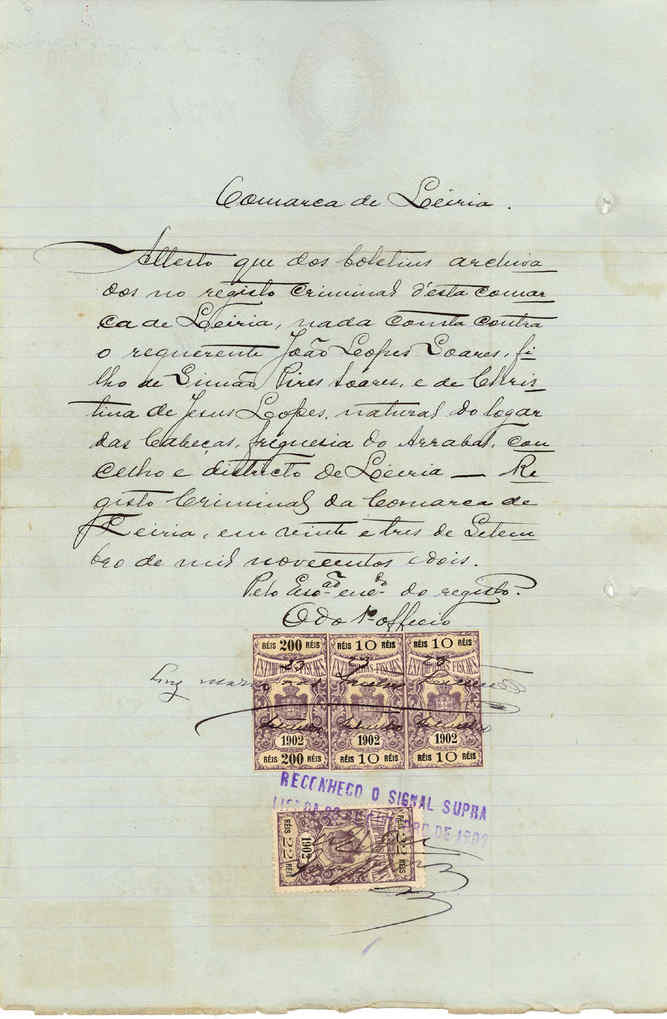 Comarca de Leiria.
Attesto que dos boletins archiva
dos no registo criminal d'esta comar
ca de Leiria, nada consta contra
o requerente João Lopes Soares, fi
lho de Simão Pires Soares, e de Chris
tina de Jesus Lopes, natural do logar
das Cabeças, freguesia do Arrabal, con
celho e districto de Leiria — Re
gisto Criminal da Comarca de
Leiria, em vinte e tres de Setem
bro de mil novecentos e dois.
Pelo Escão encdo do registo.
O do 1º officio
RÉIS 200 RÉIS RÉIS 10 RÉIS RÉIS 10 RÉIS
ESTAMPILHAS FISCAES
23 23 23
Luiz
1902 1902 1902
RÉIS 200 RÉIS RÉIS 10 RÉIS RÉIS 10 RÉIS
RECONHEÇO O SIGNAL SUPRA
LISBOA DE 1902
RÉIS RÉIS
1902